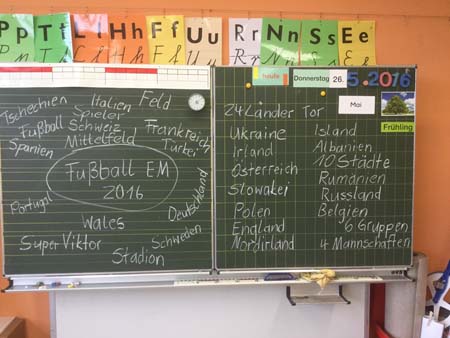 Pp Tt Ll Hh Ff Uu Rr Nn Ss Ee
heute Donnerstag 26. 5. 2016
Mai
Frühling
Tschechien
Italien
Feld
Fußball
Spieler
Schweiz
Mittelfeld
Frankreich
Türkei
Spanien
Fußball EM
2016
Portugal
Deutschland
Wales
Schweden
Super Viktor
Stadion
24 Länder Tor
Ukraine
Irland
Österreich
Slowakei
Polen
England
Nordirland
Island
Albanien
10 Städte
Rumänien
Russland
Belgien
6 Gruppen
4 Mannschaften